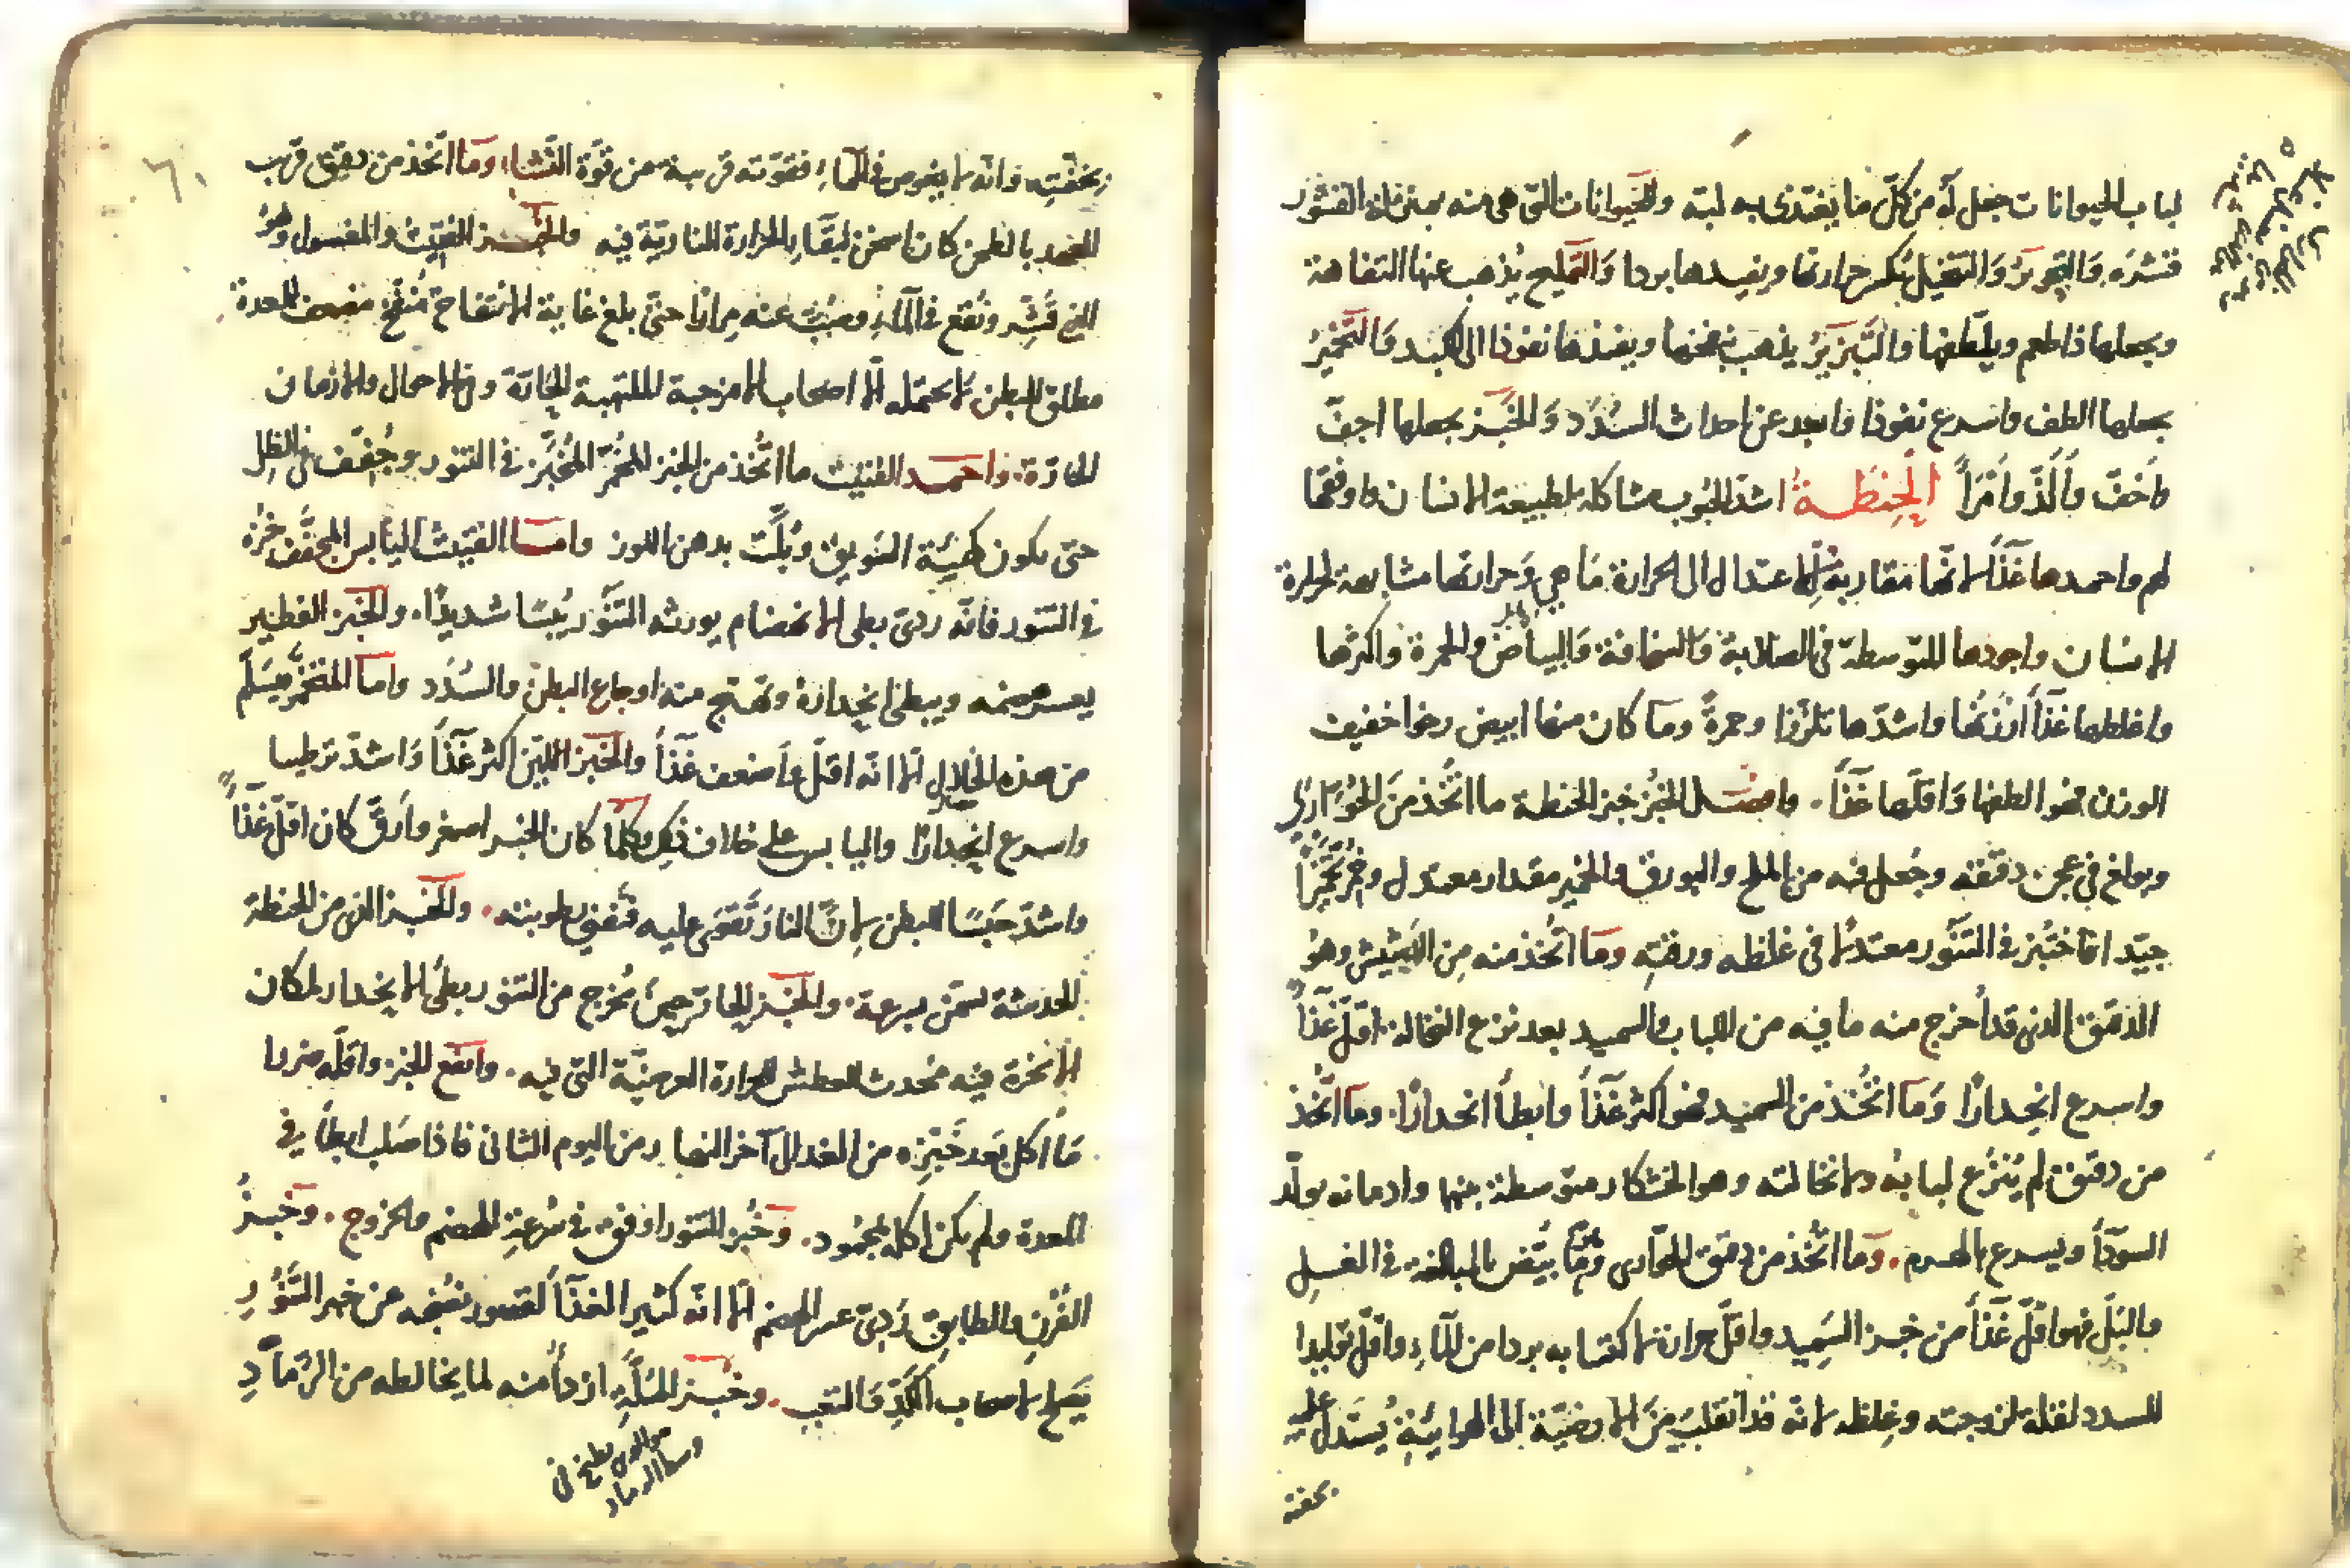 لباب الحيوانات جعل له من كل ما يغتذى به لبته والحيوانات التي هي منه بمنزلة القشور
قشره والتجويز والتنخيل يكسر حرارتها ويفيدها بردا والتمليح يذهب عنها التفاهة
ويجعلها ذا طعم ويلطفها والتبزير يذهب بنفخها وينفذها نفوذا الى الكبد والتخمير
يجعلها الطف واسرع نفوذا وابعد عن احداث السدد والخبز يجعلها اجف
واخف والذ وامرأ الحنطة اشد الحبوب مشاكلة لطبيعة الانسان واوفقها
لهم واحمدها غذاً لانها مقاربة للاعتدال الى الحرارة ما هي وحرارتها مشابهة لحرارة
الانسان واجودها المتوسطة في الصلابة والسخافة والبياض والحمرة واكثرها
واغلظها غذاً ارزنها واشدها تلززا وحمرة وما كان منها ابيض رخوا خفيف
الوزن فهو الطفها واقلها غذاً. وافضل الخبز خبز الحنطة ما اتخذ من الحوارى
وبولغ في عجن دقيقه وجعل فيه من الملح والبورق والخمير مقدار معتدل وخمر تخميرا
جيدا واختبز في التنور معتدلا في غلظه ورقته وما اتخذ منه من الجشيش وهو
الدقيق الذي قد أخرج منه ما فيه من اللباب والسميد بعد نزع النخالة اقل غذاً
واسرع انحدارا وما اتخذ من السميد فهو اكثر غذاً وابطأ انحدارا. وما اتخذ
من دقيق لم ينزع لبابه ولا نخالته وهو الخشكار متوسط بينهما وادمانه يولد
السوداً ويسرع بالهرم. وما اتخذ من دقيق الحوارى وما بيض بالمبالغة في الغسل
والبل فهو اقل غذاً من خبز السميد واقل حرارة لاكتسابه بردا من الماء واقل توليدا
للسدد لقلة لزوجته وغلظه لانه قد انقلب من الارضية الى الهوائية يستدل عليه
بخفته
بخفته وانه لا يغوص في الماء فقوته قريبة من قوة النشاء وما اتخذ من دقيق قريب
العهد بالطحن كان اسخن لبقاء الحرارة النارية فيه والخبز الفتيت والمغسول وهو
الذي قشر ونقع في الماء وصب عنه مرارا حتى بلغ غاية الانتفاخ منفخ مضعف للمعدة
مطلق للبطن لا يحتمله الا اصحاب الامزجة الملتهبة الحارة وفي الاحوال والازمان
الحارة. واحمد الفتيت ما اتخذ من الخبز المخمر المخبز في التنور وجفف في الظل
حتى يكون كهيئة السويق وبلت بدهن اللوز واما الفتيت اليابس المجفف خبزه
في التنور فانه ردي بطي الانهضام يورثه التنور يبسا شديدا. والخبز الفطير
يعسر هضمه ويبطئ انحداره وتهيج منه اوجاع البطن والسدد واما المختمر فيسلم
من هذه الخلال الا انه اقل واضعف غذاً والخبز اللين اكثر غذاً واشد ترطيبا
واسرع انحدارا واليابس على خلاف ذلك وكلما كان الخبز اصغر وارق كان اقل غذاً
واشد حبسا للبطن لان النار تقوى عليه فتفني رطوبته. والخبز الذي من الحنطة
الحديثة يسمن بسرعة. والخبز الحار حين يخرج من التنور بطئ الانحدار لمكان
الابخرة فيه محدث للعطش للحرارة العرضية التي فيه. وانفع الخبز واقله ضررا
ما اكل بعد خبزه من الغد الى آخر النهار ومن اليوم الثاني فاذا صلب ابطأ في
المعدة ولم يكن اكله بمحمود. وخبز التنور اوفق في سرعة الهضم والخروج. وخبز
الفرن والطابق ردي عسر الهضم الا انه كثير الغذاً لقصور نضجه عن خبز التنور
يصلح لاصحاب الكد والتعب. وخبز الملة اردأ منه لما يخالطه من الرماد
هو الذي يطبخ في
وسط الرماد